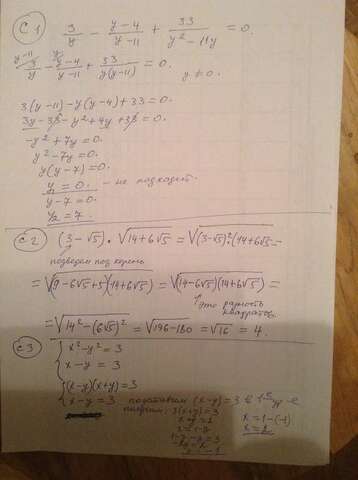 С1 3/y - (y-4)/(y-11) + 33/(y²-11y) = 0.
y-11 y
3/y - (y-4)/(y-11) + 33/(y(y-11)) = 0. y≠0.
3(y-11) - y(y-4) + 33 = 0.
3y - 33 - y² + 4y + 33 = 0.
-y² + 7y = 0.
y² - 7y = 0.
y(y-7) = 0.
y = 0. - не подходит.
y - 7 = 0.
y₂ = 7.
С2 (3-√5) · √(14+6√5) = √((3-√5)²(14+6√5)) =
подведем под корень
= √((9-6√5+5)(14+6√5)) = √((14-6√5)(14+6√5)) =
Это разность квадратов
= √(14² - (6√5)²) = √(196-180) = √16 = 4.
С3 { x² - y² = 3
x - y = 3
{ (x-y)(x+y) = 3
x - y = 3 подставим (x-y) = 3 в 1-е ур-е
получим: 3(x+y) = 3
x+y = 1
x = 1-y
1-y-y = 3
x = 1-(-1)
x = 2